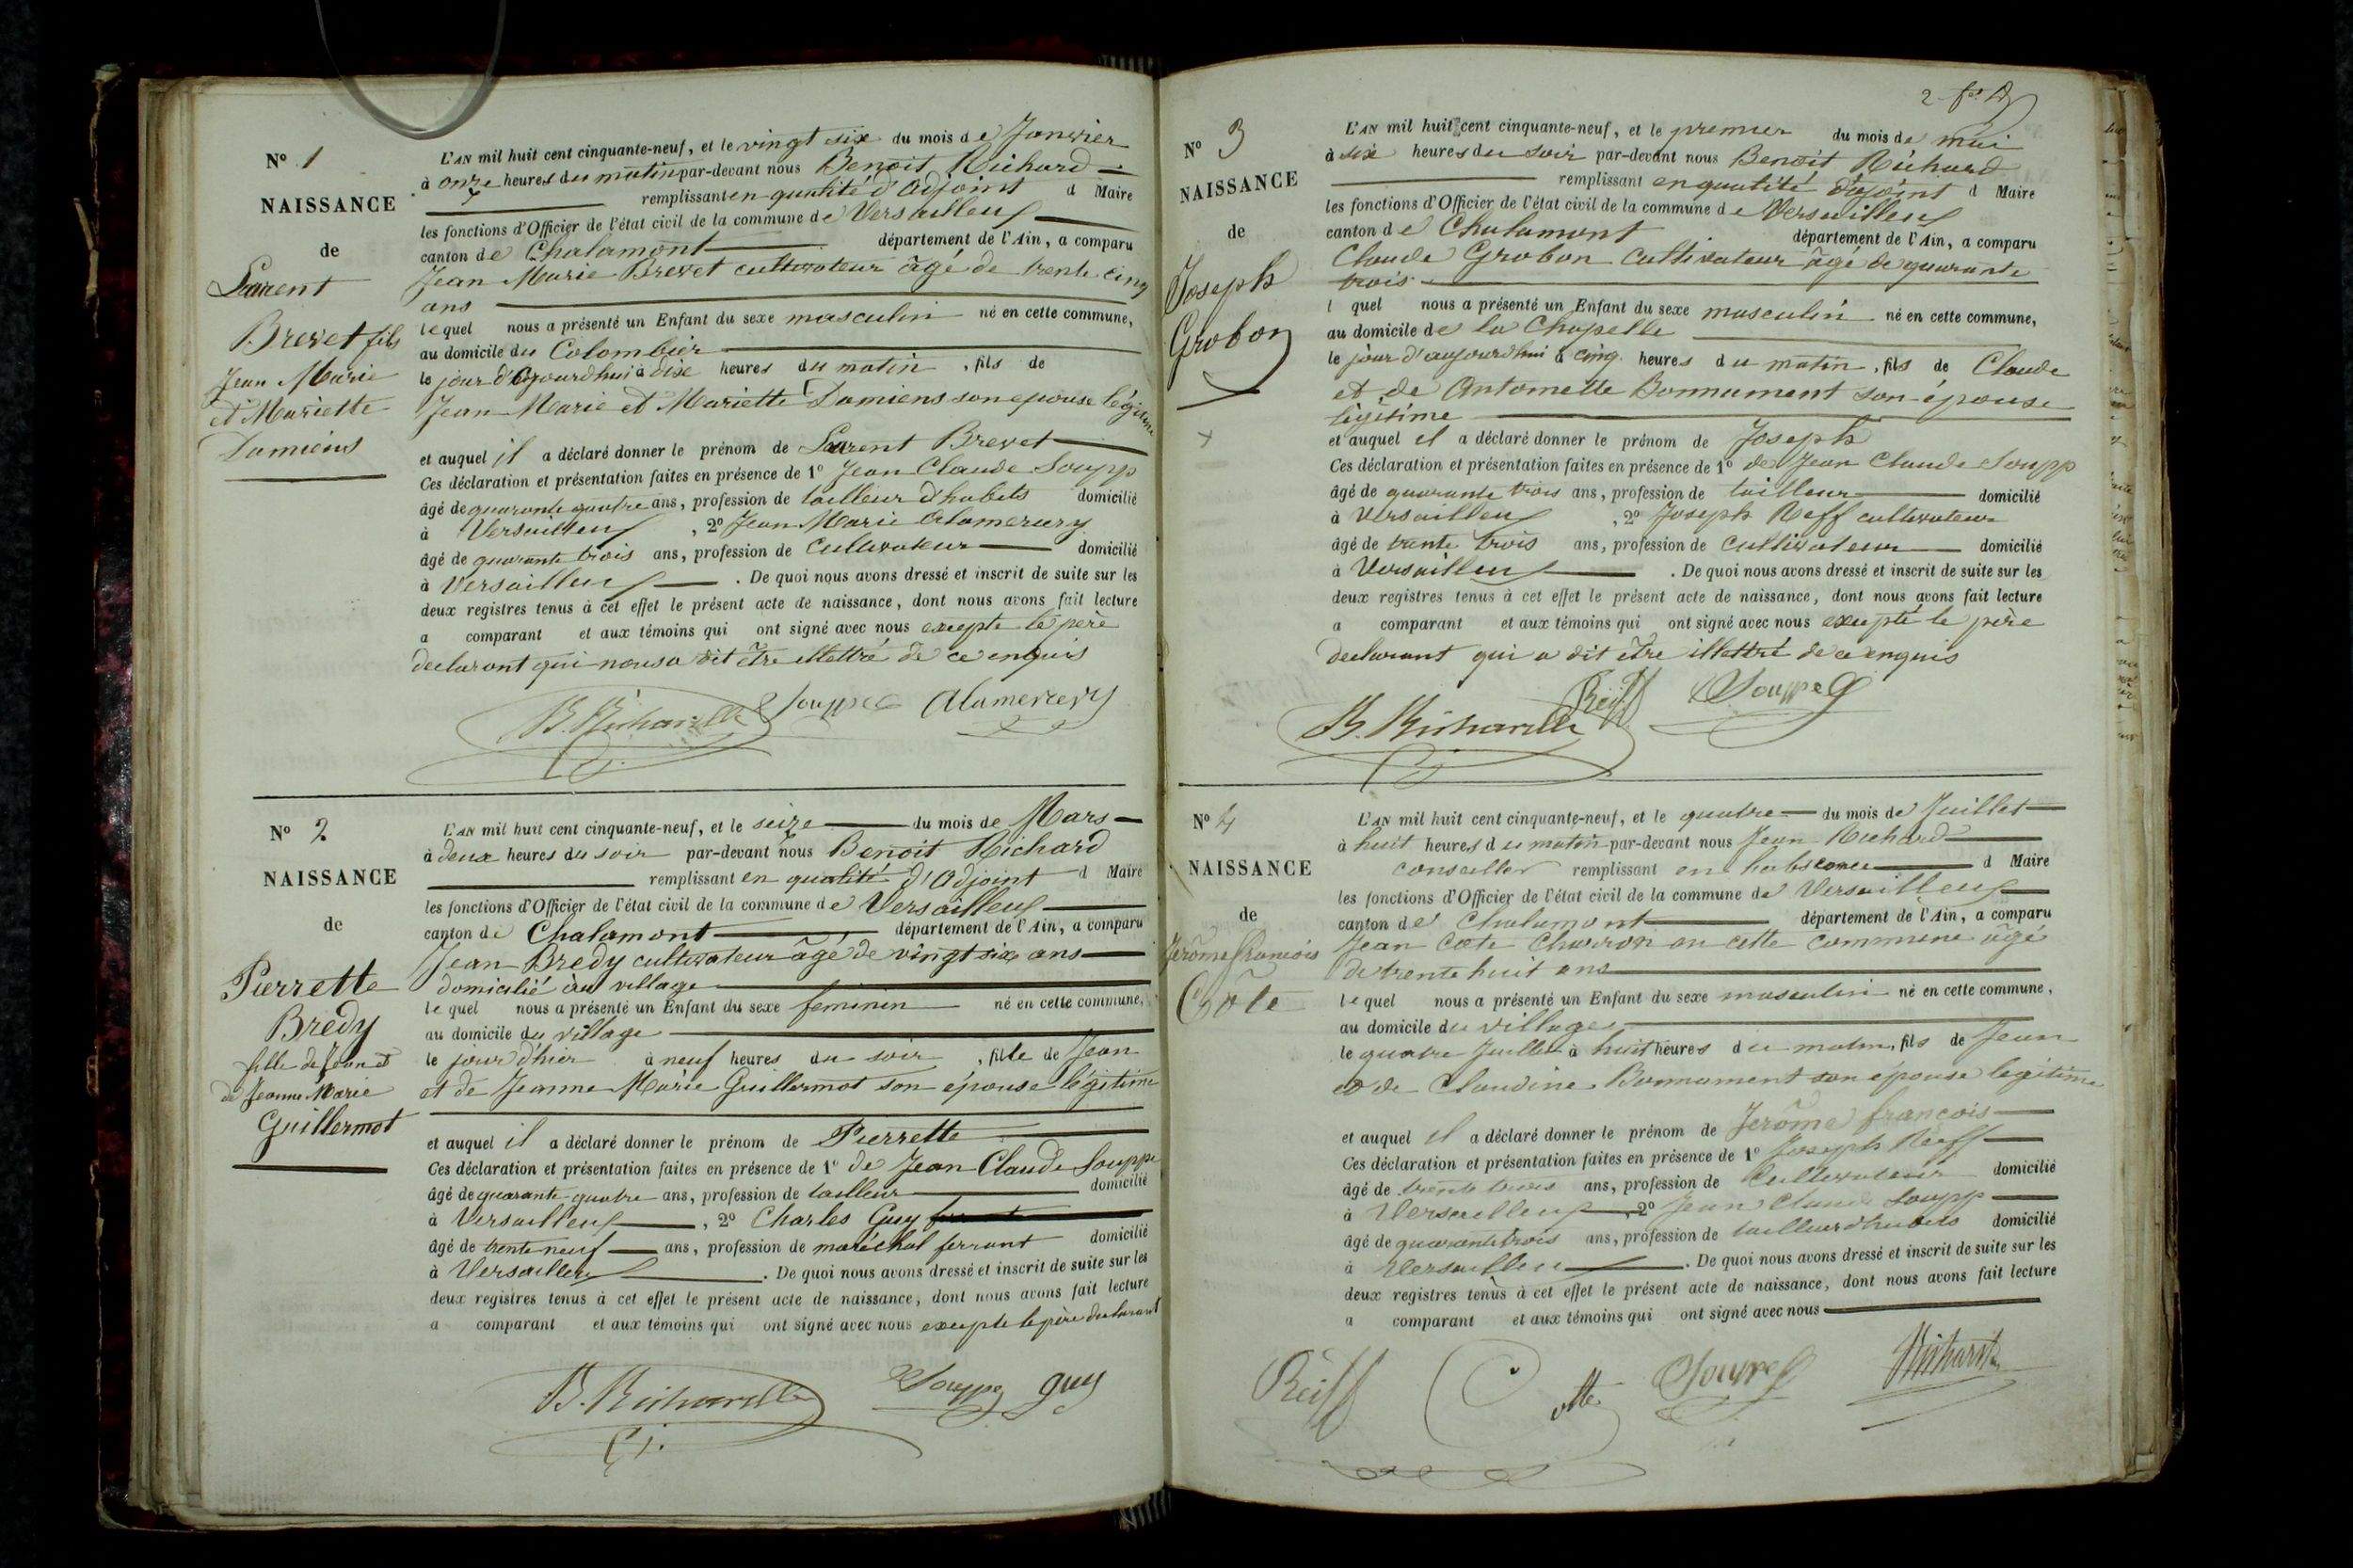 N° 1
NAISSANCE
de
Laurent
Brevet fils
Jean Marie
et Mariette
Damiens
L'AN mil huit cent cinquante-neuf, et le vingt six du mois de Janvier
à onze heures du matin par-devant nous Benoit Richard
remplissant en qualité d'Adjoint d Maire
les fonctions d'Officier de l'état civil de la commune de Versailleux
canton de Chalamont département de l'Ain, a comparu
Jean Marie Brevet cultivateur âgé de trente cinq
ans
lequel nous a présenté un Enfant du sexe masculin né en cette commune,
au domicile du Colombier
le jour d'aujourdhui à dix heures du matin, fils de
Jean Marie et Mariette Damiens son epouse légitime
et auquel il a déclaré donner le prénom de Laurent Brevet
Ces déclaration et présentation faites en présence de 1° Jean Claude Soupp
âgé de quarante quatre ans, profession de tailleur d'habits domicilié
à Versailleux, 2° Jean Marie Alamercery
âgé de quarante trois ans, profession de Cultivateur domicilié
à Versailleux. De quoi nous avons dressé et inscrit de suite sur les
deux registres tenus à cet effet le présent acte de naissance, dont nous avons fait lecture
a comparant et aux témoins qui ont signé avec nous excepte le père
declarant qui nous a dit être illettré de ce enquis
B. Richard Souppe Alamercery
N° 2
NAISSANCE
de
Pierrette
Bredy
fille de Jean et
de Jeanne Marie
Guillermot
L'AN mil huit cent cinquante-neuf, et le seize du mois de Mars
à deux heures du soir par-devant nous Benoit Richard
remplissant en qualité d'Adjoint d Maire
les fonctions d'Officier de l'état civil de la commune de Versailleux
canton de Chalamont département de l'Ain, a comparu
Jean Bredy cultivateur âgé de vingt six ans
domicilié au village
lequel nous a présenté un Enfant du sexe feminin né en cette commune,
au domicile du village
le jour d'hier à neuf heures du soir, fille de Jean
et de Jeanne Marie Guillermot son épouse légitime
et auquel il a déclaré donner le prénom de Pierrette
Ces déclaration et présentation faites en présence de 1° de Jean Claude Souppe
âgé de quarante quatre ans, profession de tailleur domicilié
à Versailleux, 2° Charles Guy
âgé de trente neuf ans, profession de maréchal ferrant domicilié
à Versailleux. De quoi nous avons dressé et inscrit de suite sur les
deux registres tenus à cet effet le présent acte de naissance, dont nous avons fait lecture
a comparant et aux témoins qui ont signé avec nous excepte le père declarant
B. Richard Souppe guy
2
N° 3
NAISSANCE
de
Joseph
Grobon
L'AN mil huit cent cinquante-neuf, et le premier du mois de mai
à six heures du soir par-devant nous Benoit Richard
remplissant en qualité d'ajoint d Maire
les fonctions d'Officier de l'état civil de la commune de Versailleux
canton de Chalamont département de l'Ain, a comparu
Claude Grobon Cultivateur âgé de quarante
trois
l quel nous a présenté un Enfant du sexe masculin né en cette commune,
au domicile de la Chapelle
le jour d'aujourdhui à cinq heures du matin, fils de Claude
et de Antoinette Bonnument son épouse
légitime
et auquel il a déclaré donner le prénom de Joseph
Ces déclaration et présentation faites en présence de 1° de Jean Claude Soupp
âgé de quarante trois ans, profession de tailleur domicilié
à Versailleux, 2° Joseph Reff cultivateur
âgé de trente trois ans, profession de cultivateur domicilié
à Versailleux. De quoi nous avons dressé et inscrit de suite sur les
deux registres tenus à cet effet le présent acte de naissance, dont nous avons fait lecture
a comparant et aux témoins qui ont signé avec nous excepté le père
declarant qui a dit être illettré de ce enquis
B. Richard Reiff Souppe
N° 4
NAISSANCE
de
Jerôme francois
Côte
L'AN mil huit cent cinquante-neuf, et le quatre du mois de Juillet
à huit heures du matin par-devant nous Jean Richard
conseiller remplissant en d Maire
les fonctions d'Officier de l'état civil de la commune de Versailleux
canton de Chalamont département de l'Ain, a comparu
Jean Cote Charron en cette commune âgé
de trente huit ans
lequel nous a présenté un Enfant du sexe masculin né en cette commune,
au domicile du village
le quatre Juillet à huit heures du matin, fils de Jean
et de Claudine Bonnument son épouse legitime
et auquel il a déclaré donner le prénom de Jerôme francois
Ces déclaration et présentation faites en présence de 1° Joseph Reeff
âgé de trente trois ans, profession de Cultivateur domicilié
à Versailleux, 2° Jean Claude Soupp
âgé de quarante trois ans, profession de tailleur d'habits domicilié
à Versailleux. De quoi nous avons dressé et inscrit de suite sur les
deux registres tenus à cet effet le présent acte de naissance, dont nous avons fait lecture
a comparant et aux témoins qui ont signé avec nous
Reiff Cotte Souppe Richard